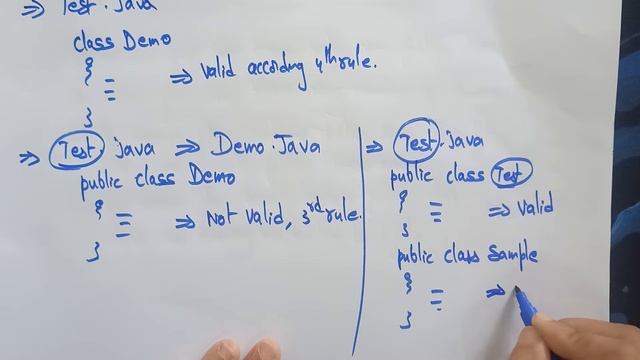 ⇒ Test.java
class Demo
{
≡ ⇒ Valid according 4th rule.
}
⇒ Test.java ⇒ Demo.Java
public class Demo
{
≡ ⇒ Not valid, 3rd rule.
}
⇒ Test.java
public class Test
{
≡ ⇒ valid
}
public class Sample
{
≡ ⇒
}